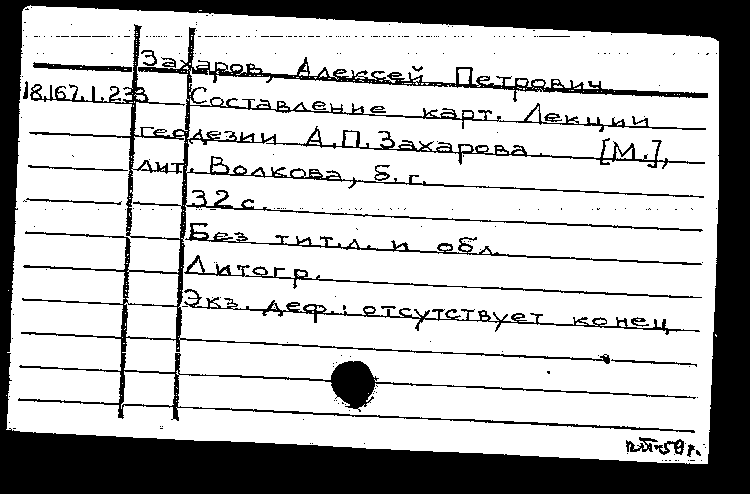 Захаров, Алексей Петрович
18.167.1.233 Составление карт. Лекции
геодезии А.П. Захарова. [М.],
лит. Волкова, б.г.
32 с.
Без тит.л. и обл.
Литогр.
Экз. деф.: отсутствует конец